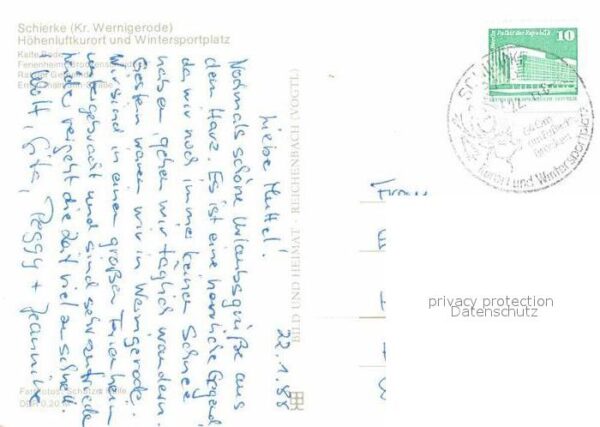 Schierke (Kr. Wernigerode)
Höhenluftkurort und Wintersportplatz
Kalte Bode
Ferienheim
22.1.88
Liebe Muttel!
Nochmals schöne Urlaubsgrüße aus
dem Harz. Es ist eine herrliche Gegend,
da wir noch immer keinen Schnee
haben, gehen wir täglich wandern.
Gestern waren wir in Wernigerode.
Wir sind in einem großen Ferienheim
untergebracht und sind sehr zufrieden
leider vergeht die Zeit viel zu schnell.
Gita, Peggy + Jeannine
BILD UND HEIMAT · REICHENBACH (VOGTL)
Palast der Republik
10
und Wintersportplatz
privacy protection
Datenschutz